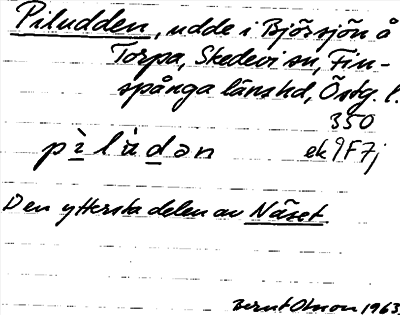 Piludden, udde i Björsjön å
Torpa, Skedevi sn, Fin-
spånga länshd, Östg. l.
350
ek 9F7j
pìlùdən
Den yttersta delen av Näset
Bernt Olsson 1963.